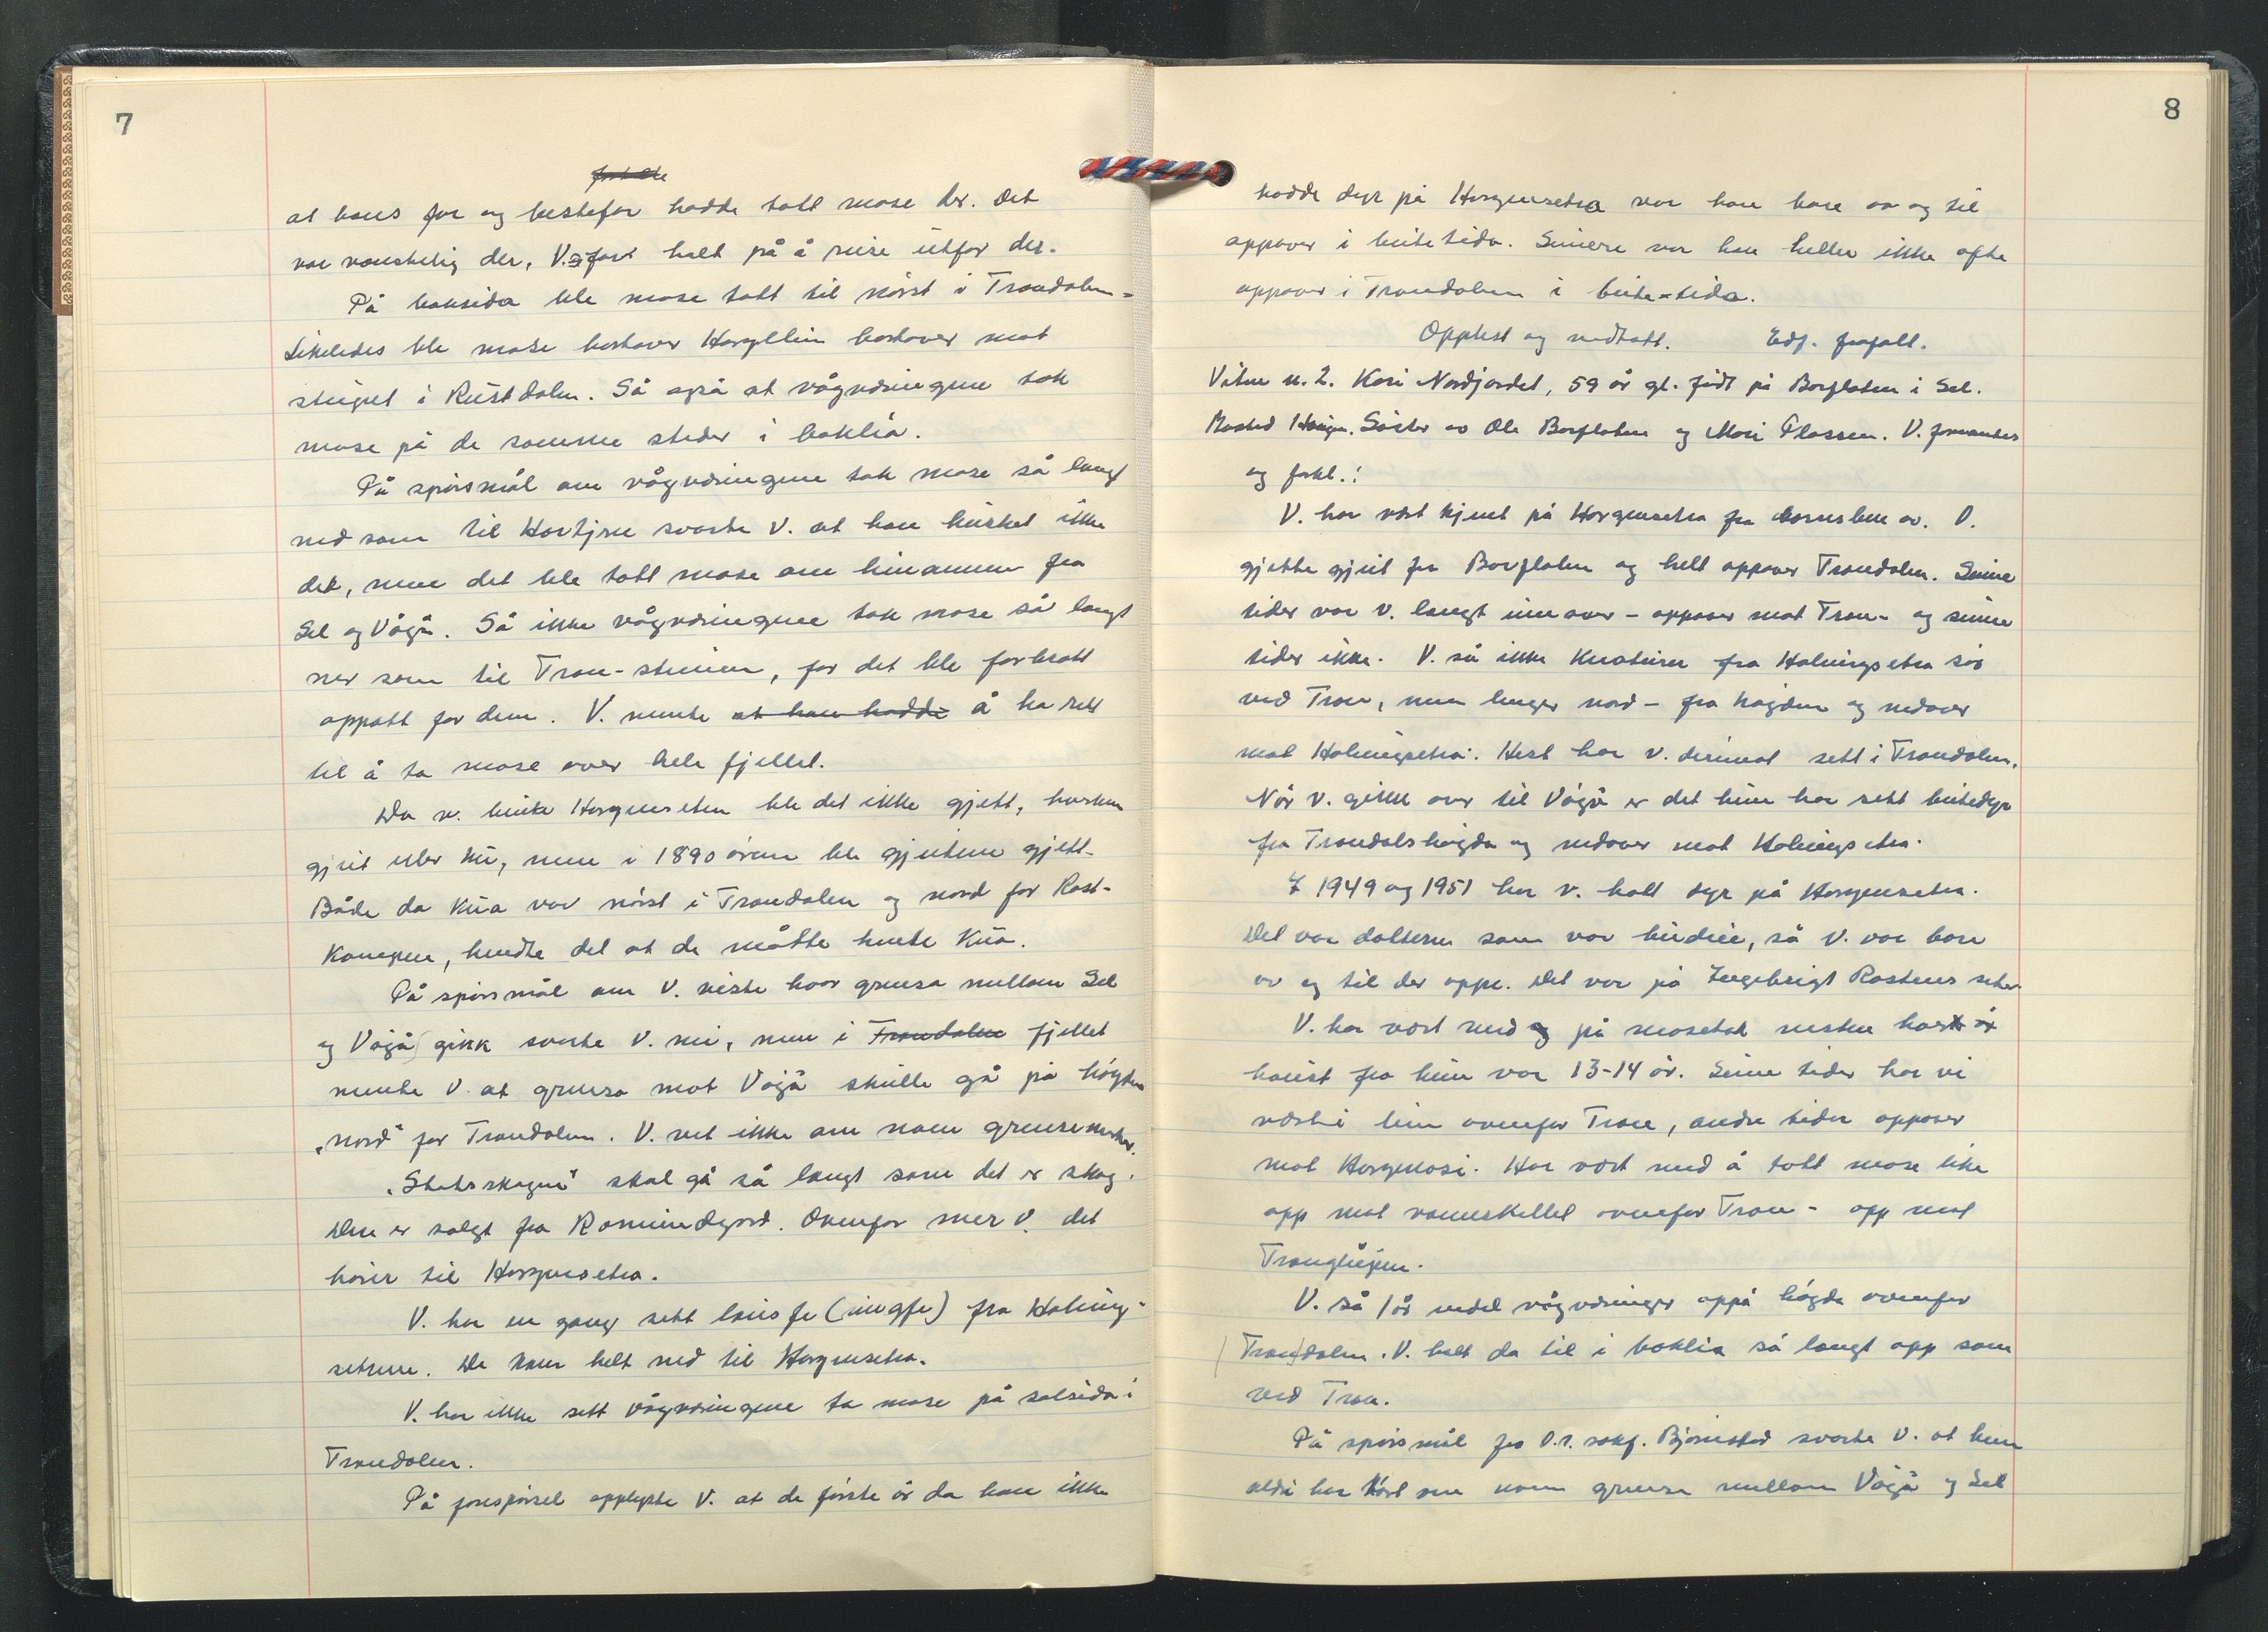 7
at hans far og bestefar hadde tatt mose der. Det
var vanskelig der, V. holt på å reise utfor der.
På baksida ble mose tatt til nörst i Trondalen.
Likeledes ble mose bortover Horgllin bortover mot
stuguet i Rustdalen. Så også at vågværingene tok
mose på de samme steder i baklia.
På spörsmål om vågværingene tok mose så langt
ned som til Hovtjern svarte V. at han husket ikke
det, men det ble tatt mose om hinannen fra
Sel og Vågå. Så ikke vågværingene tok mose så langt
ner som til Tron-steinen, for det ble for bratt
oppatt for dem. V. mente at han hadde å ha rett
til å ta mose over hele fjellet.
Da v. brukte Horgenseten ble det ikke gjett, hverken
gjeit eller ku, men i 1890 årene ble gjeitene gjett.
Både da kua var nörst i Trondalen og nord for Rost-
kampen, hendte det at de måtte hente kua.
På spörsmål om V. visste hvor grensa mellom Sel
og Vågå gikk svarte V. nei, men i Trondalen fjellet
mente V. at grensa mot Vågå skulle gå på högden
"nord" for Trondalen. V. vet ikke om noen grensemerker.
"Statsskogen" skal gå så langt som det er skog.
Den er solgt fra Romundgard. Ovenfor mener V. det
hörer til Horgensetra.
V. har en gang sett lausfe (ungfe) fra Haling-
setrene. De kom helt ned til Horgensetra.
V. har ikke sett vågværingene ta mose på solsida i
Trondalen.
På forespörsel opplyste V. at de förste år da han ikke
8
hadde dyr på Horgensetra var han bare av og til
oppover i beitetida. Seinere var han heller ikke ofte
oppover i Trondalen i beite-tida.
Opplest og vedtatt. Edf. frafalt.
Vitne n. 2. Kari Nordjordet, 59 år gl. født på Borgflaten i Sel.
Bosted Haugen. Söster av Ole Borgflaten og Mari Plassen. V. formantes
og forkl.:
V. har vært kjent på Horgensetra fra barnsben av. V.
gjette gjeit fra Borgflaten og helt oppover Trondalen. Somme
tider var v. langt innover - oppover mot Tron - og somme
tider ikke. V. så ikke kuaturer fra Halingsetra sör
ved Tron, men lenger nord - fra högden og nedover
mot Halingsetra. Hest har v. derimot sett i Trondalen.
Når v. gikk over til Vågå er det hun har sett beitedyr
fra Trondalshögda og nedover mot Halingsetra.
I 1949 og 1951 har v. hatt dyr på Horgensetra.
Det var datteren som var budeie, så V. var bare
av og til der oppe. Det var på Ingebrigt Rostens seter
V. har vært med på mosetak nesten hver
haust fra hun var 13-14 år. Somme tider har vi
vært i lien ovenfor Tron, andre tider oppover
mot Horgenosi. Har vært med å tatt mose like
opp mot vannskillet ovenfor Tron - opp mot
V. så 1 år endel vågværinger oppå högda ovenfor
Trondalen. V. helt da til i baklia så langt opp som
ved Tron.
På spörsmål fra o.r. sakf. Björnstad svarte V. at hun
aldri har hört om noen grense mellom Vågå og Sel